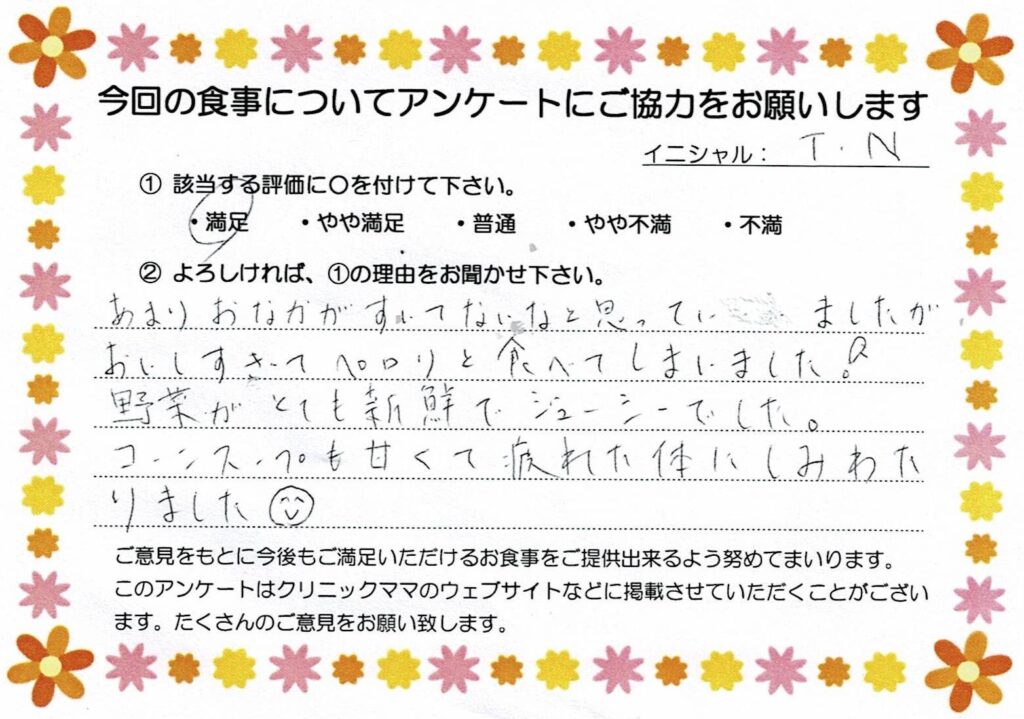 今回の食事についてアンケートにご協力をお願いします
イニシャル： T.N
① 該当する評価に〇を付けて下さい。
・満足 ・やや満足 ・普通 ・やや不満 ・不満
② よろしければ、①の理由をお聞かせ下さい。
あまりおなかがすいてないなと思ってい ましたが
おいしすぎてペロリと食べてしまいました!
野菜がとても新鮮でジューシーでした。
コーンスープも甘くて疲れた体にしみわた
りました
ご意見をもとに今後もご満足いただけるお食事をご提供出来るよう努めてまいります。
このアンケートはクリニックママのウェブサイトなどに掲載させていただくことがござい
ます。たくさんのご意見をお願い致します。